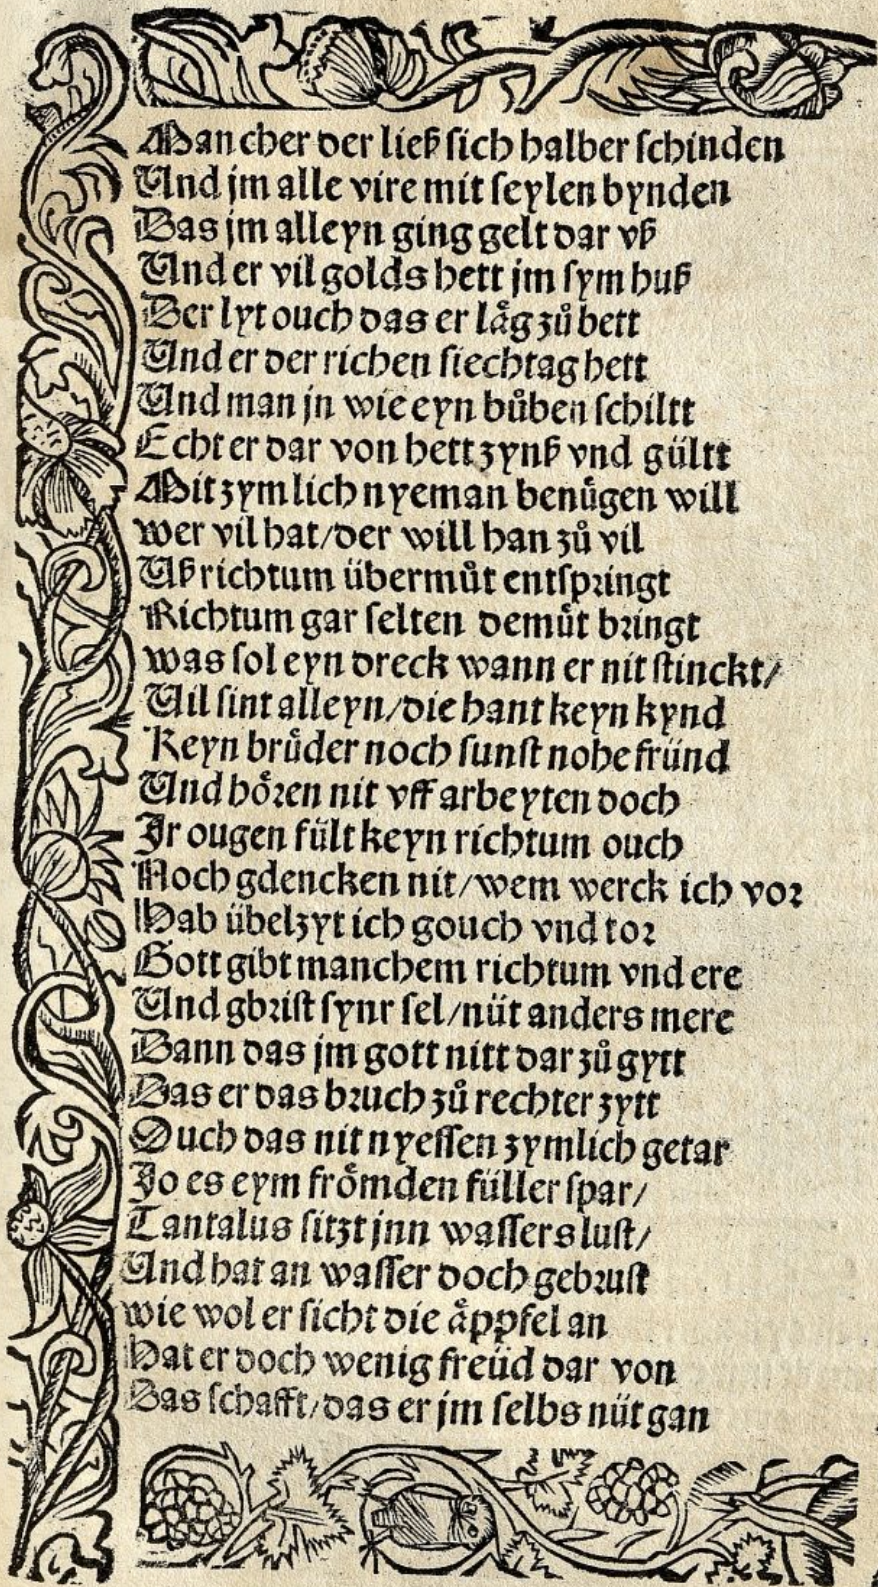 Mancher der ließ sich halber schinden
Und jm alle vire mit seylen bynden
Das jm alleyn ging gelt dar vß
Und er vil golds hett jm sym huß
Der lyt ouch das er låg zů bett
Und er der richen siechtag hett
Und man jn wie eyn bůben schiltt
Echt er dar von hett zynß vnd gültt
Mit zymlich nyeman benůgen will
wer vil hat/der will han zů vil
Uß richtum übermůt entspringt
Richtum gar selten demůt bringt
was sol eyn dreck wann er nit stinckt/
Uil sint alleyn/die hant keyn kynd
Keyn brůder noch sunst nohe fründ
Und hören nit vff arbeyten doch
Ir ougen fült keyn richtum ouch
Noch gdencken nit/wem werck ich vor
Hab übelzyt ich gouch vnd tor
Gott gibt manchem richtum vnd ere
Und gbrist synr sel/nüt anders mere
Dann das jm gott nitt dar zů gytt
Das er das bruch zů rechter zytt
Ouch das nit nyessen zymlich getar
Jo es eym frömden füller spar/
Tantalus sitzt jnn wassers lust/
Und hat an wasser doch gebrust
wie wol er sicht die åppfel an
Hat er doch wenig freüd dar von
Das schafft/das er jm selbs nüt gan